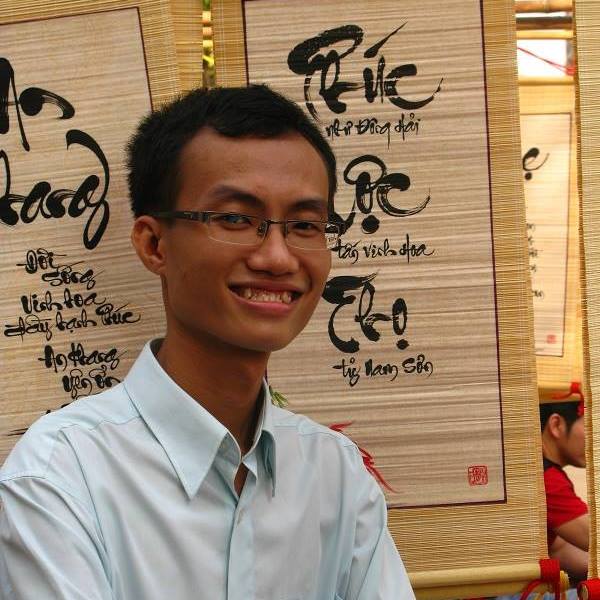 An
Khang
Đời
Sống
Vinh hoa
đầy hạnh Phúc
An Khang
yên ổn
Phúc
như Đông Hải
Lộc
tấn vinh hoa
Thọ
tỷ Nam Sơn